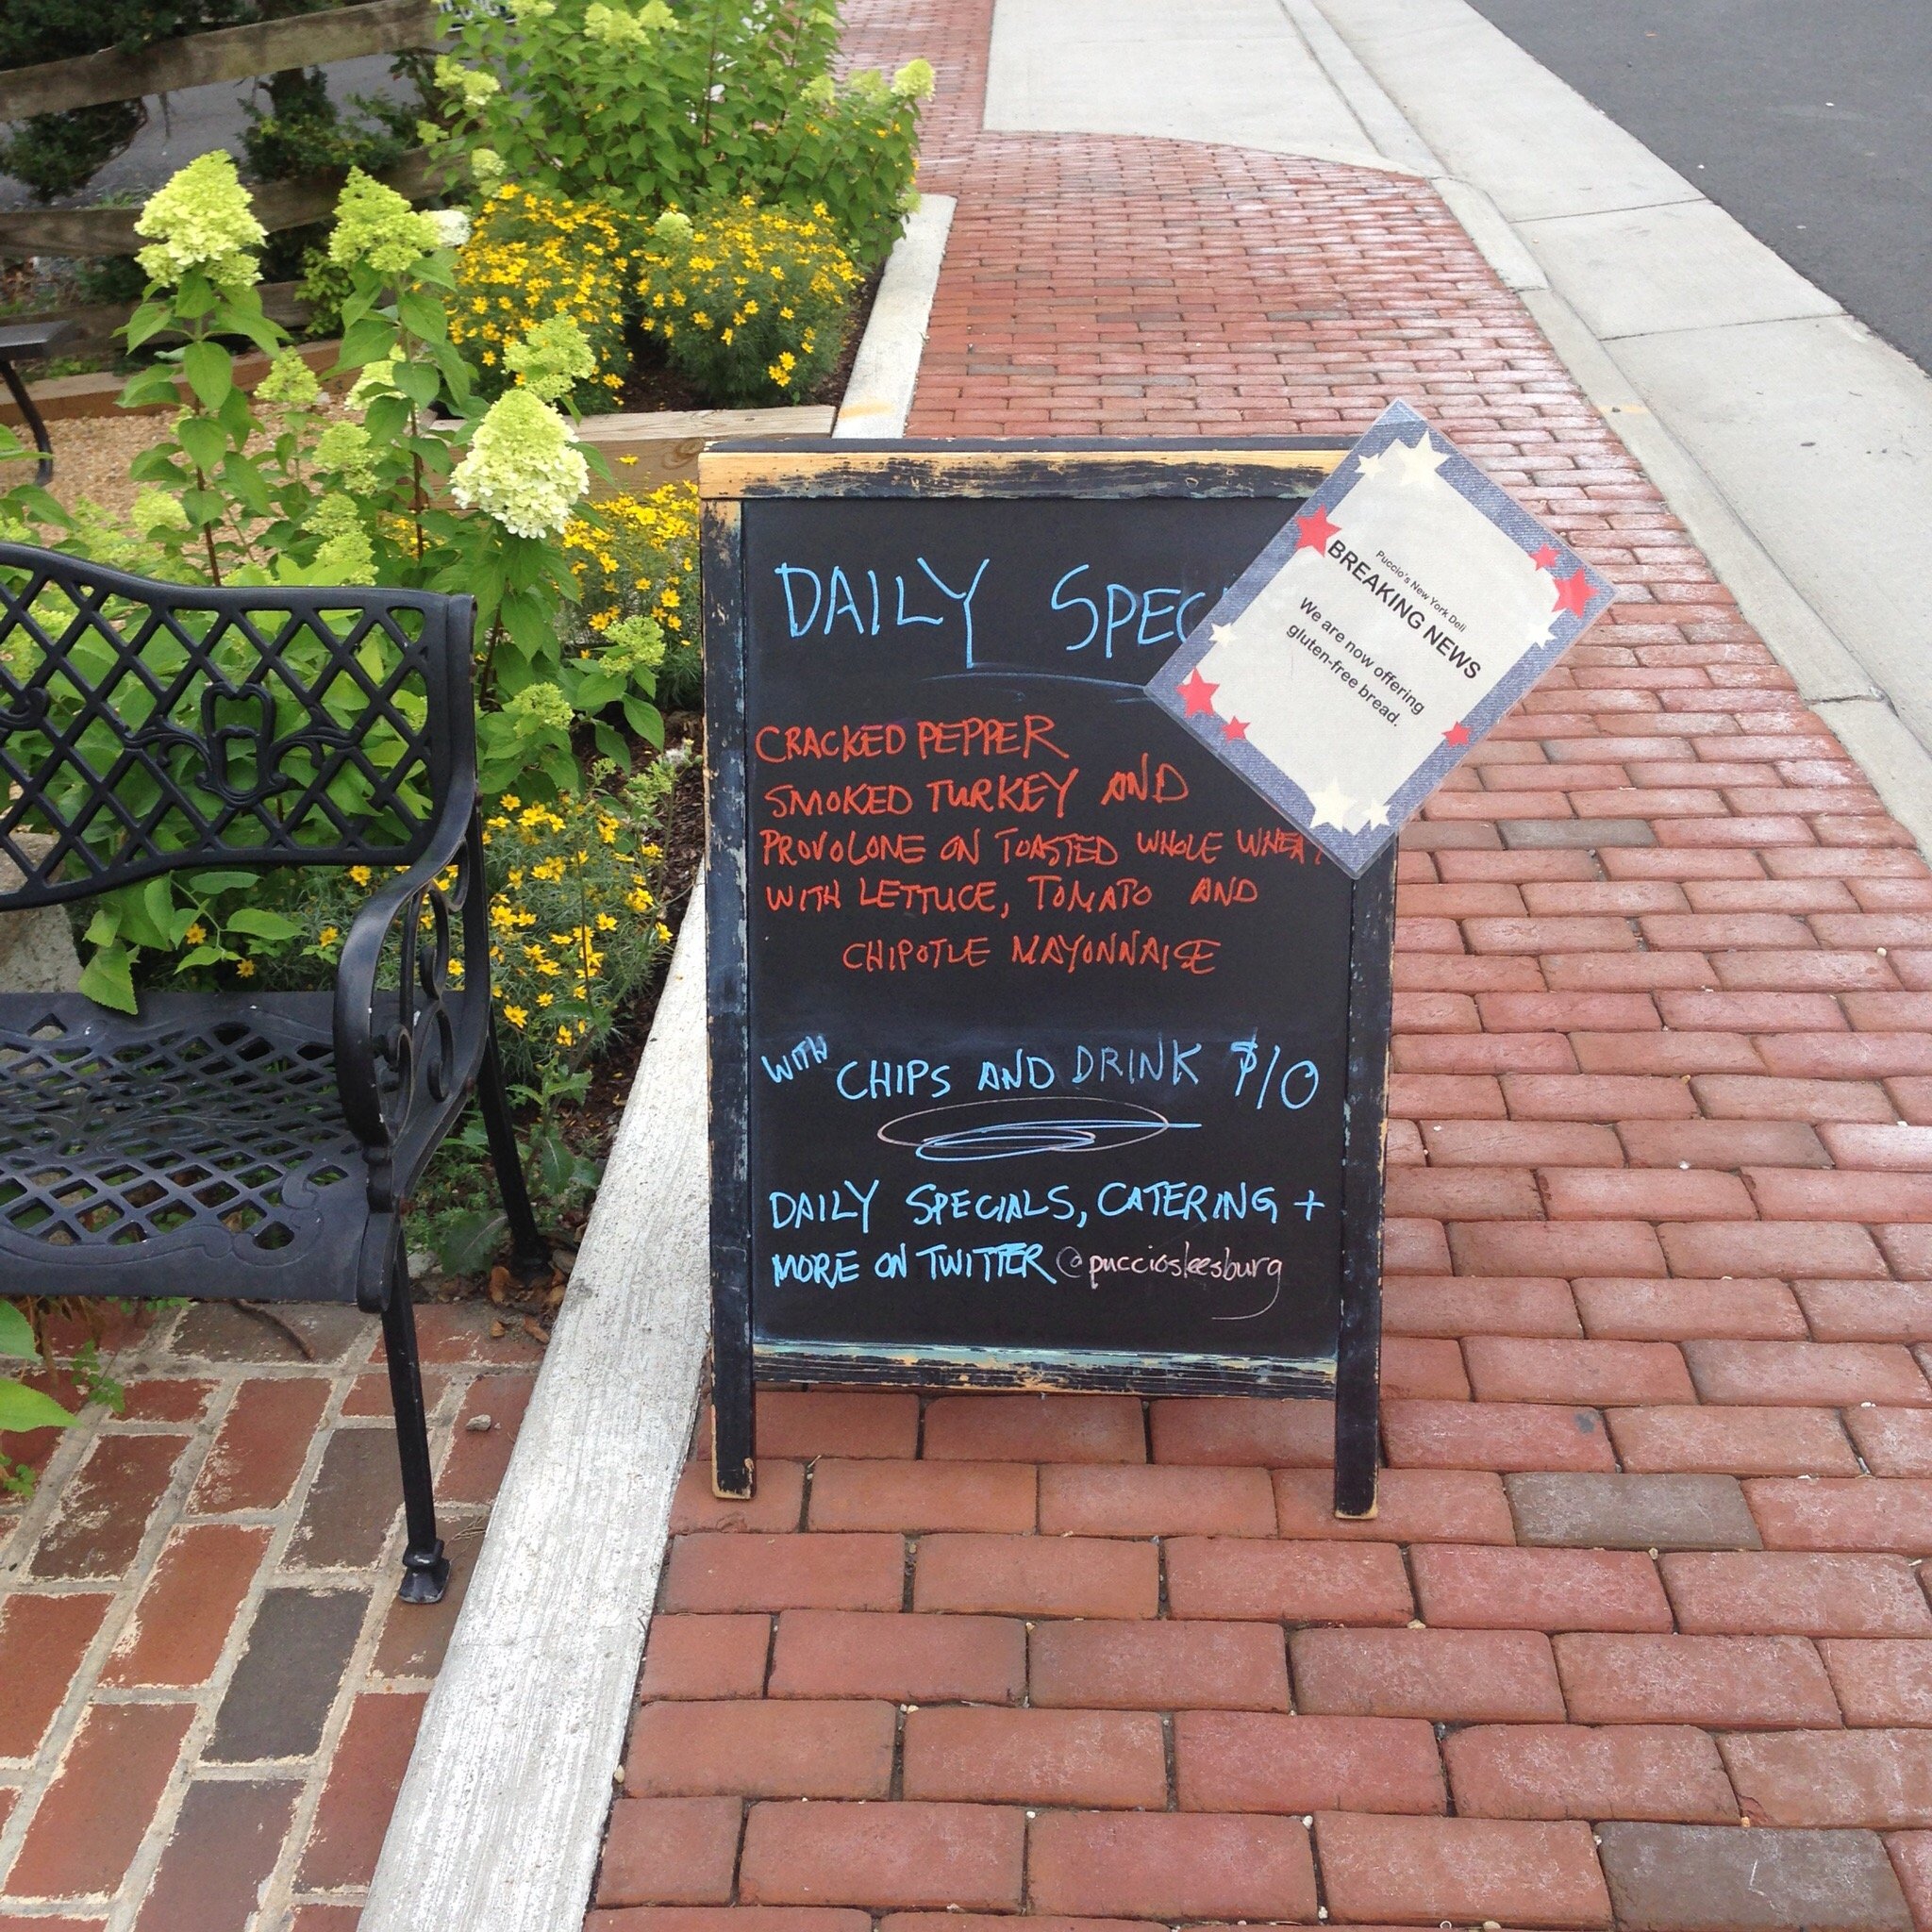 DAILY SPEC
Puccio's New York Deli
BREAKING NEWS
We are now offering
gluten-free bread.
CRACKED PEPPER
SMOKED TURKEY AND
PROVOLONE ON TOASTED WHOLE WHEAT
WITH LETTUCE, TOMATO AND
CHIPOTLE MAYONNAISE
WITH CHIPS AND DRINK $10
DAILY SPECIALS, CATERING +
MORE ON TWITTER @pucciosleesburg